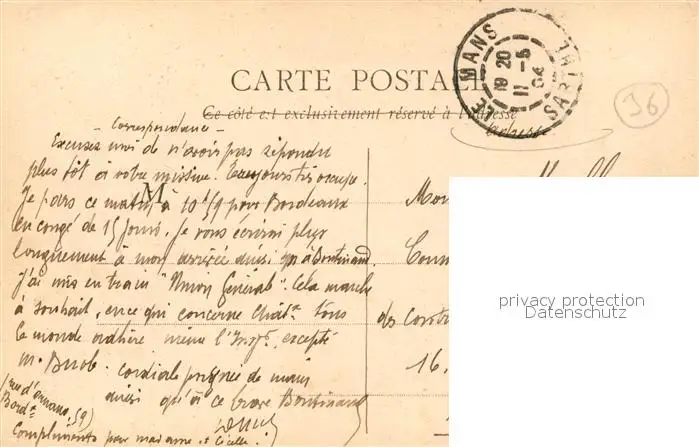 LE MANS
SARTHE
19 20
11 -5
04
36
CARTE POSTALE
Ce côté est exclusivement réservé à l'adresse
- Correspondance -
adresse
Excusez moi de n'avoir pas répondu
plus tôt à votre missive. Toujours très occupé.
Je pars ce matin, à 10 h 59 pour Bordeaux
en congé de 15 jours. Je vous écrirai plus
longuement à mon arrivée ainsi qu'à
M
J'ai mis en train "Union Générale". Cela marche
à souhait, en ce qui concerne tous
le monde adhère même excepté
M. cordiale poignée de main
ainsi qu'à ce brave
Compliments pour madame et
Mon
des Contri
16.
privacy protection
Datenschutz